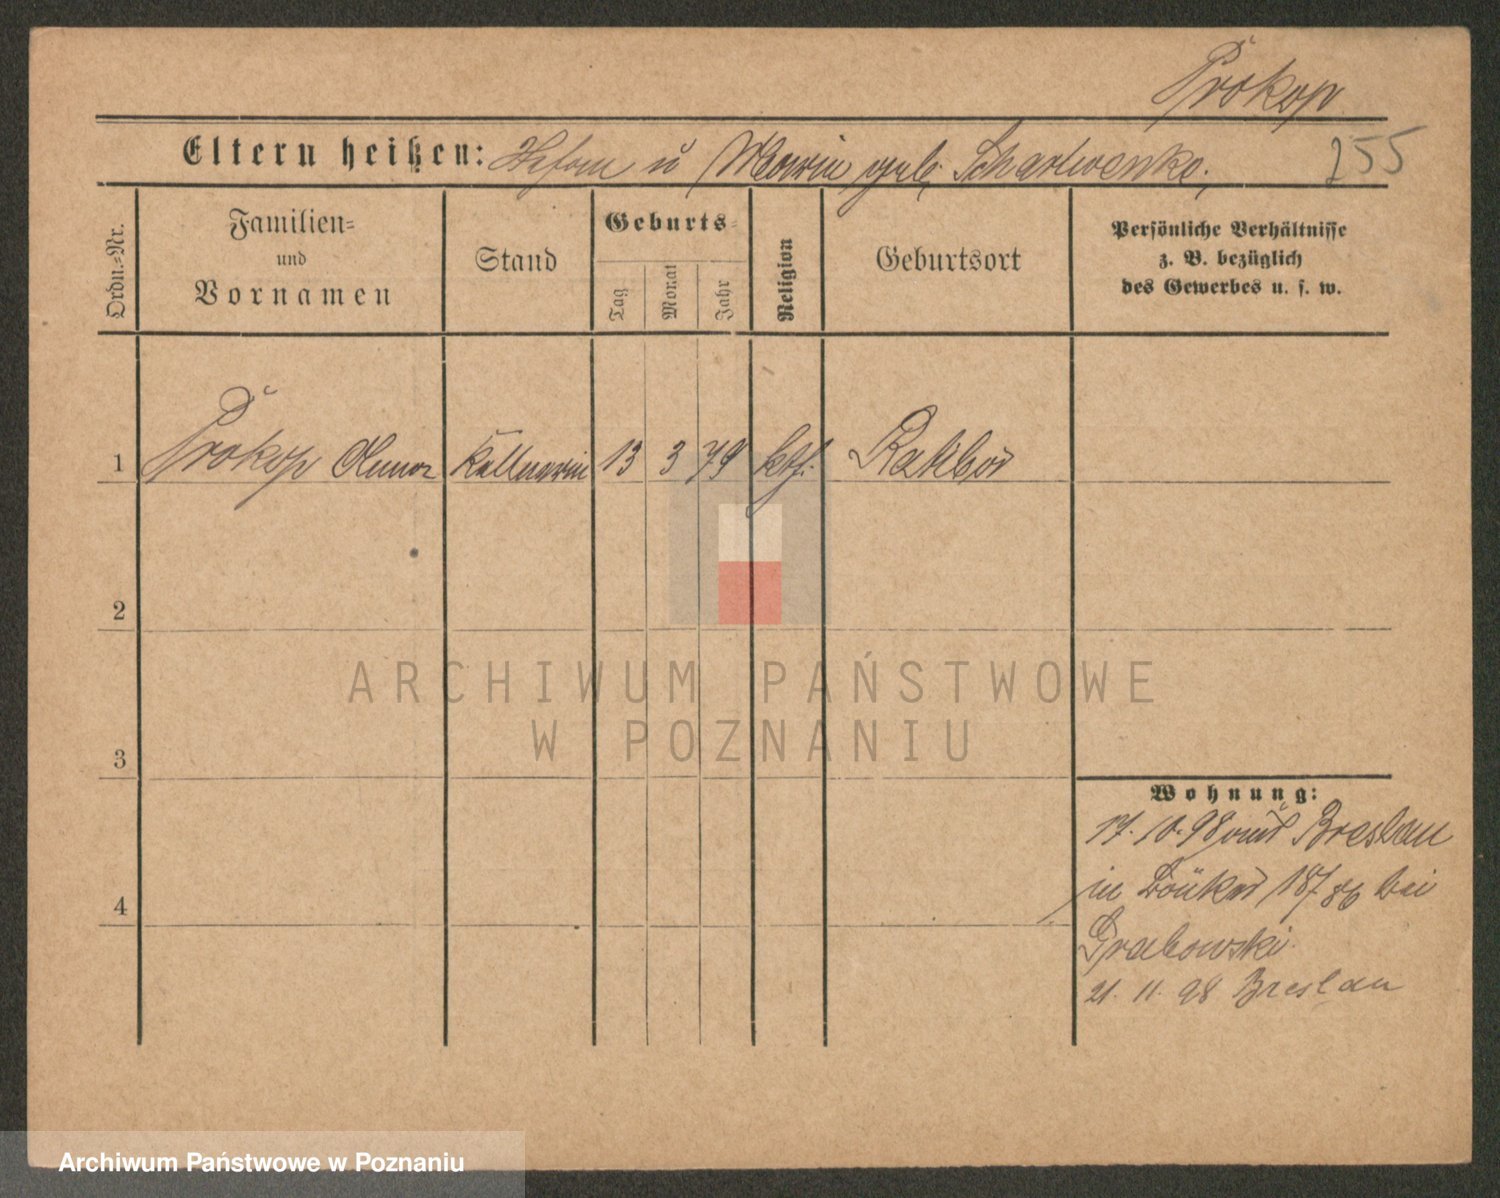 Prokop
255
Eltern heißen: u geb. Scharlwenka,
Ordn.-Nr.
Familien-
und
Vornamen
Stand
Geburts-
Tag
Monat
Jahr
Religion
Geburtsort
Persönliche Verhältnisse
z. B. bezüglich
des Gewerbes u. s. w.
1 Prokop Anna Kellnerin 13 3 79 kth. Ratibor
2
3
4
Wohnung:
17. 10. 98 aus Breslau
in 187 86 bei
Grabowski.
21. 11. 98 Breslau
ARCHIWUM PAŃSTWOWE
W POZNANIU
Archiwum Państwowe w Poznaniu